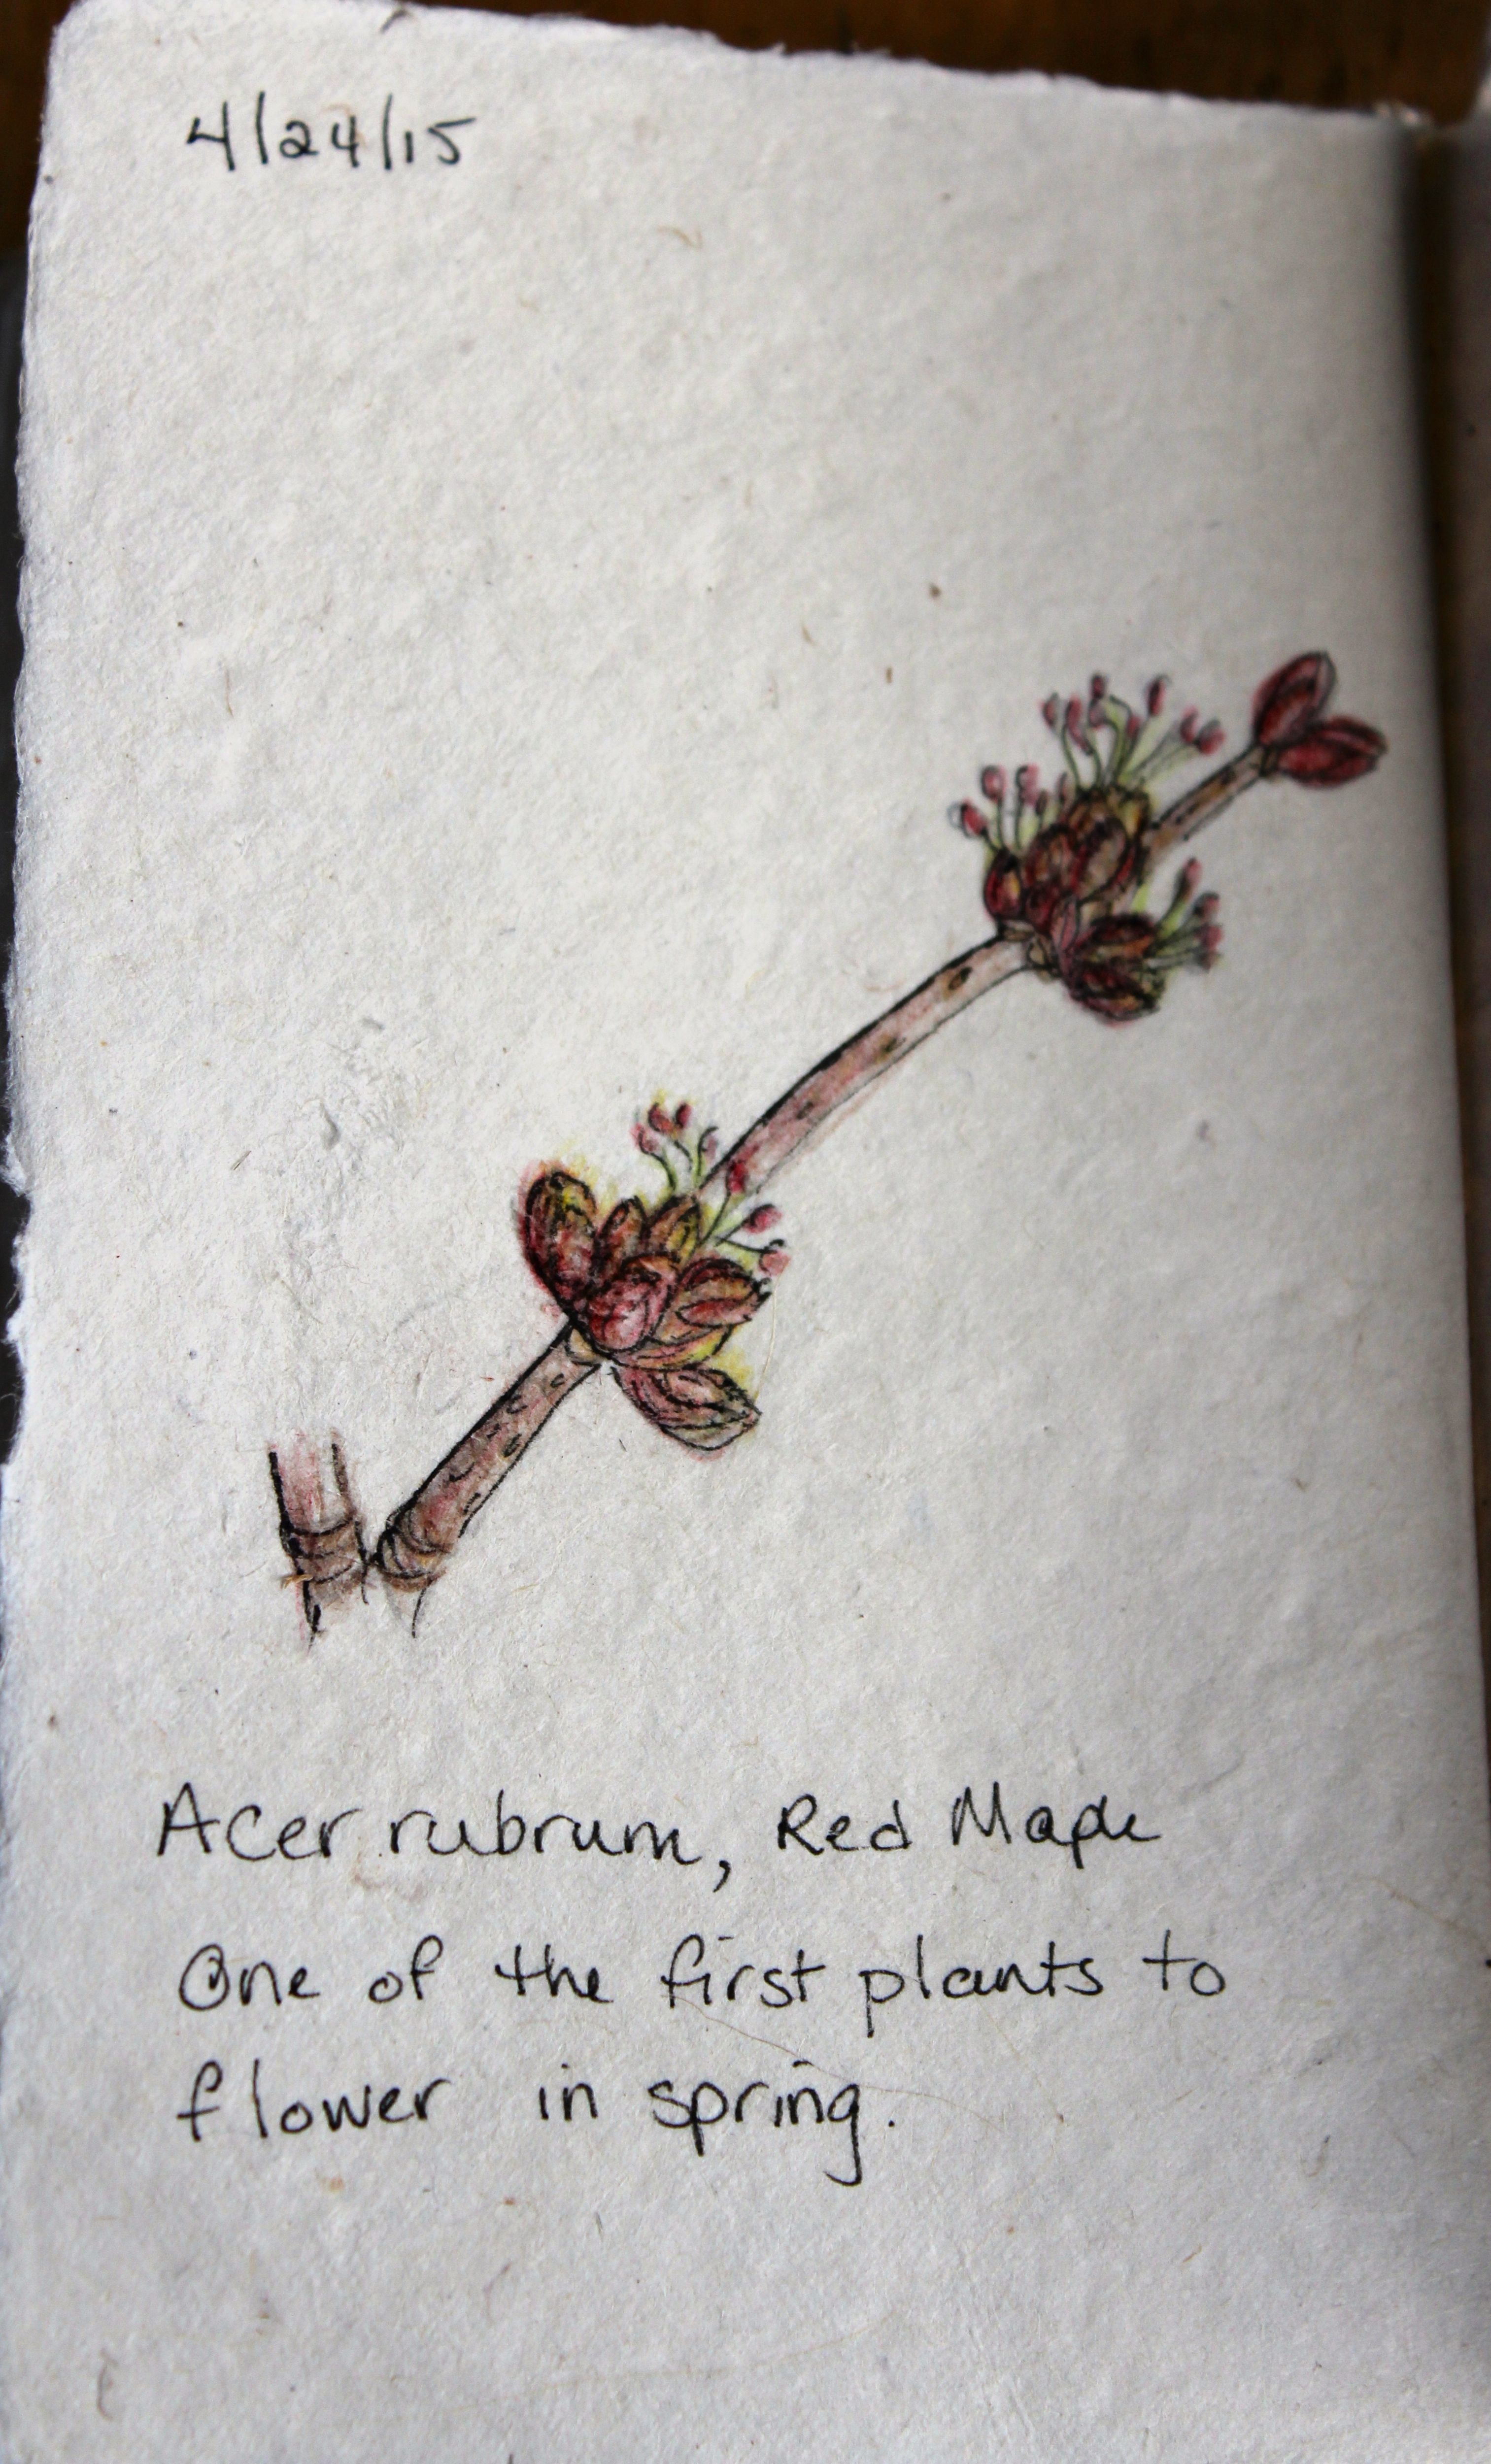 4/24/15
Acer rubrum, Red Maple
One of the first plants to
flower in spring.